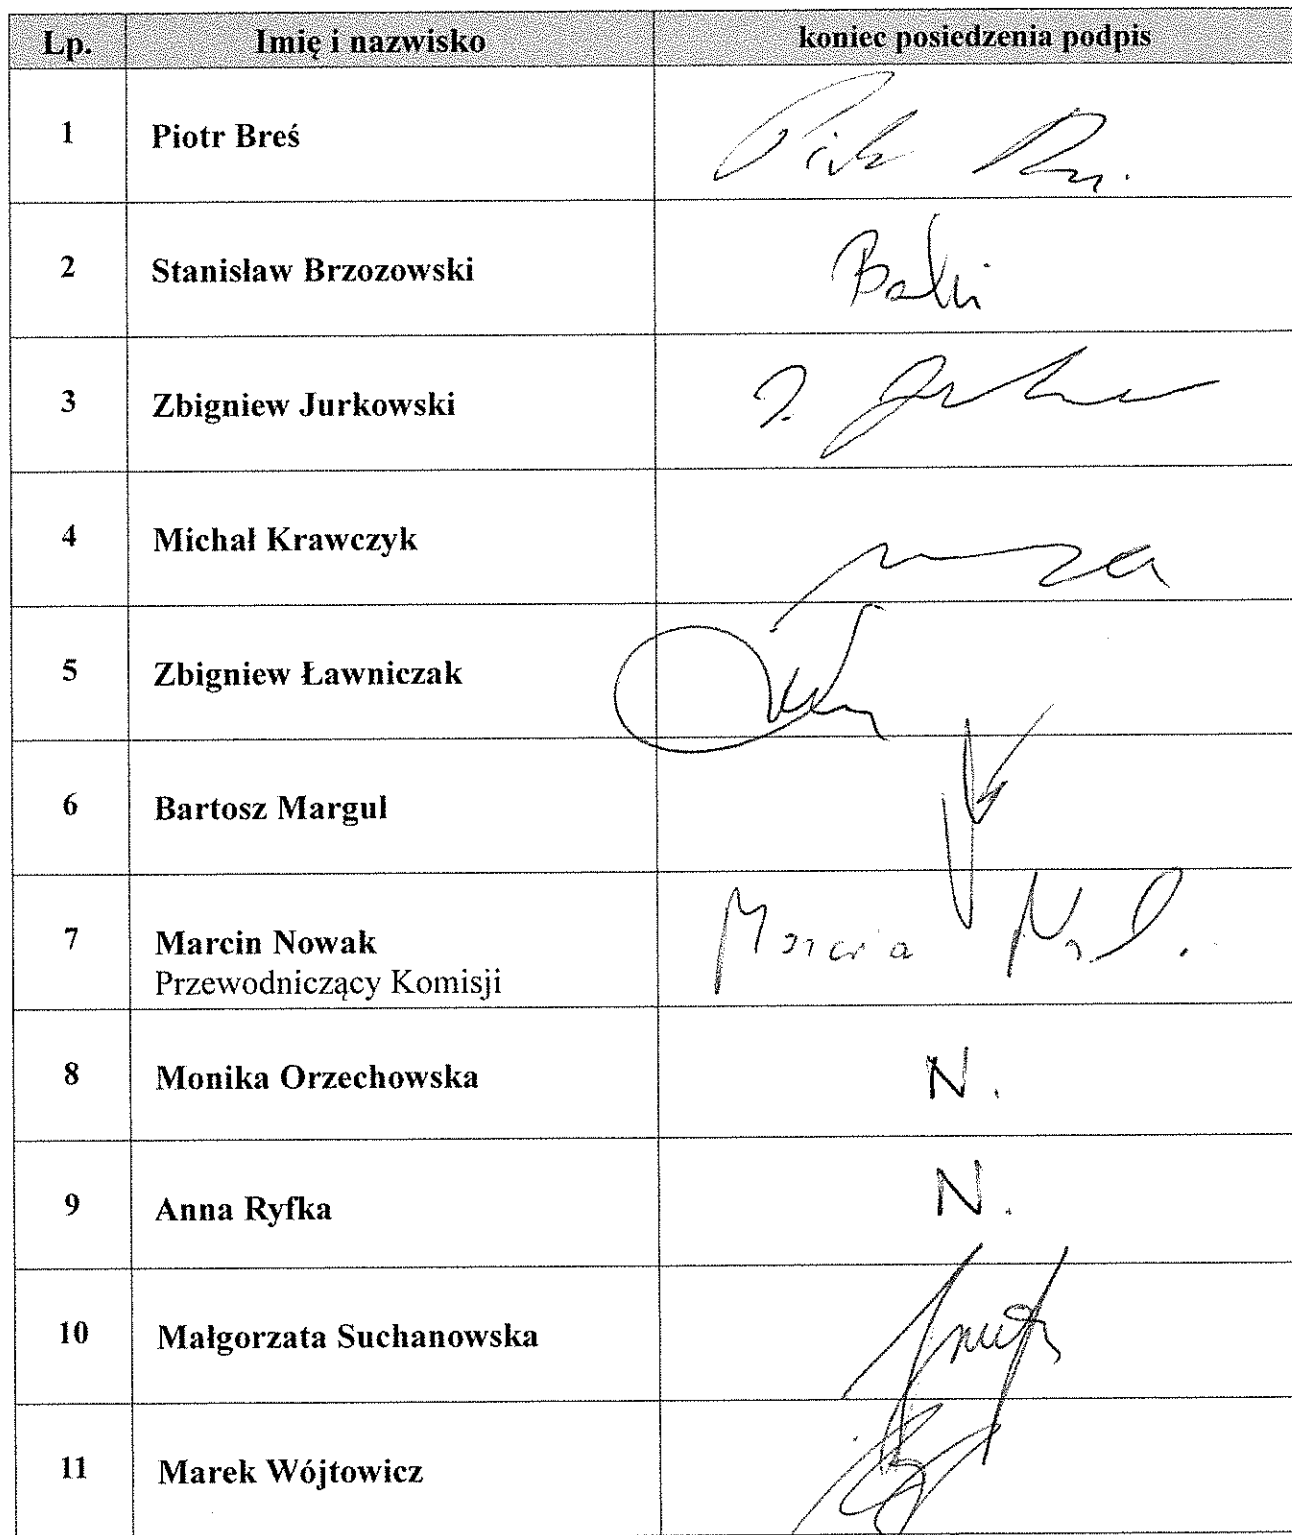 Lp. Imię i nazwisko koniec posiedzenia podpis
1 Piotr Breś
2 Stanisław Brzozowski
3 Zbigniew Jurkowski
4 Michał Krawczyk
5 Zbigniew Ławniczak
6 Bartosz Margul
7 Marcin Nowak
Przewodniczący Komisji
8 Monika Orzechowska N.
9 Anna Ryfka N.
10 Małgorzata Suchanowska
11 Marek Wójtowicz